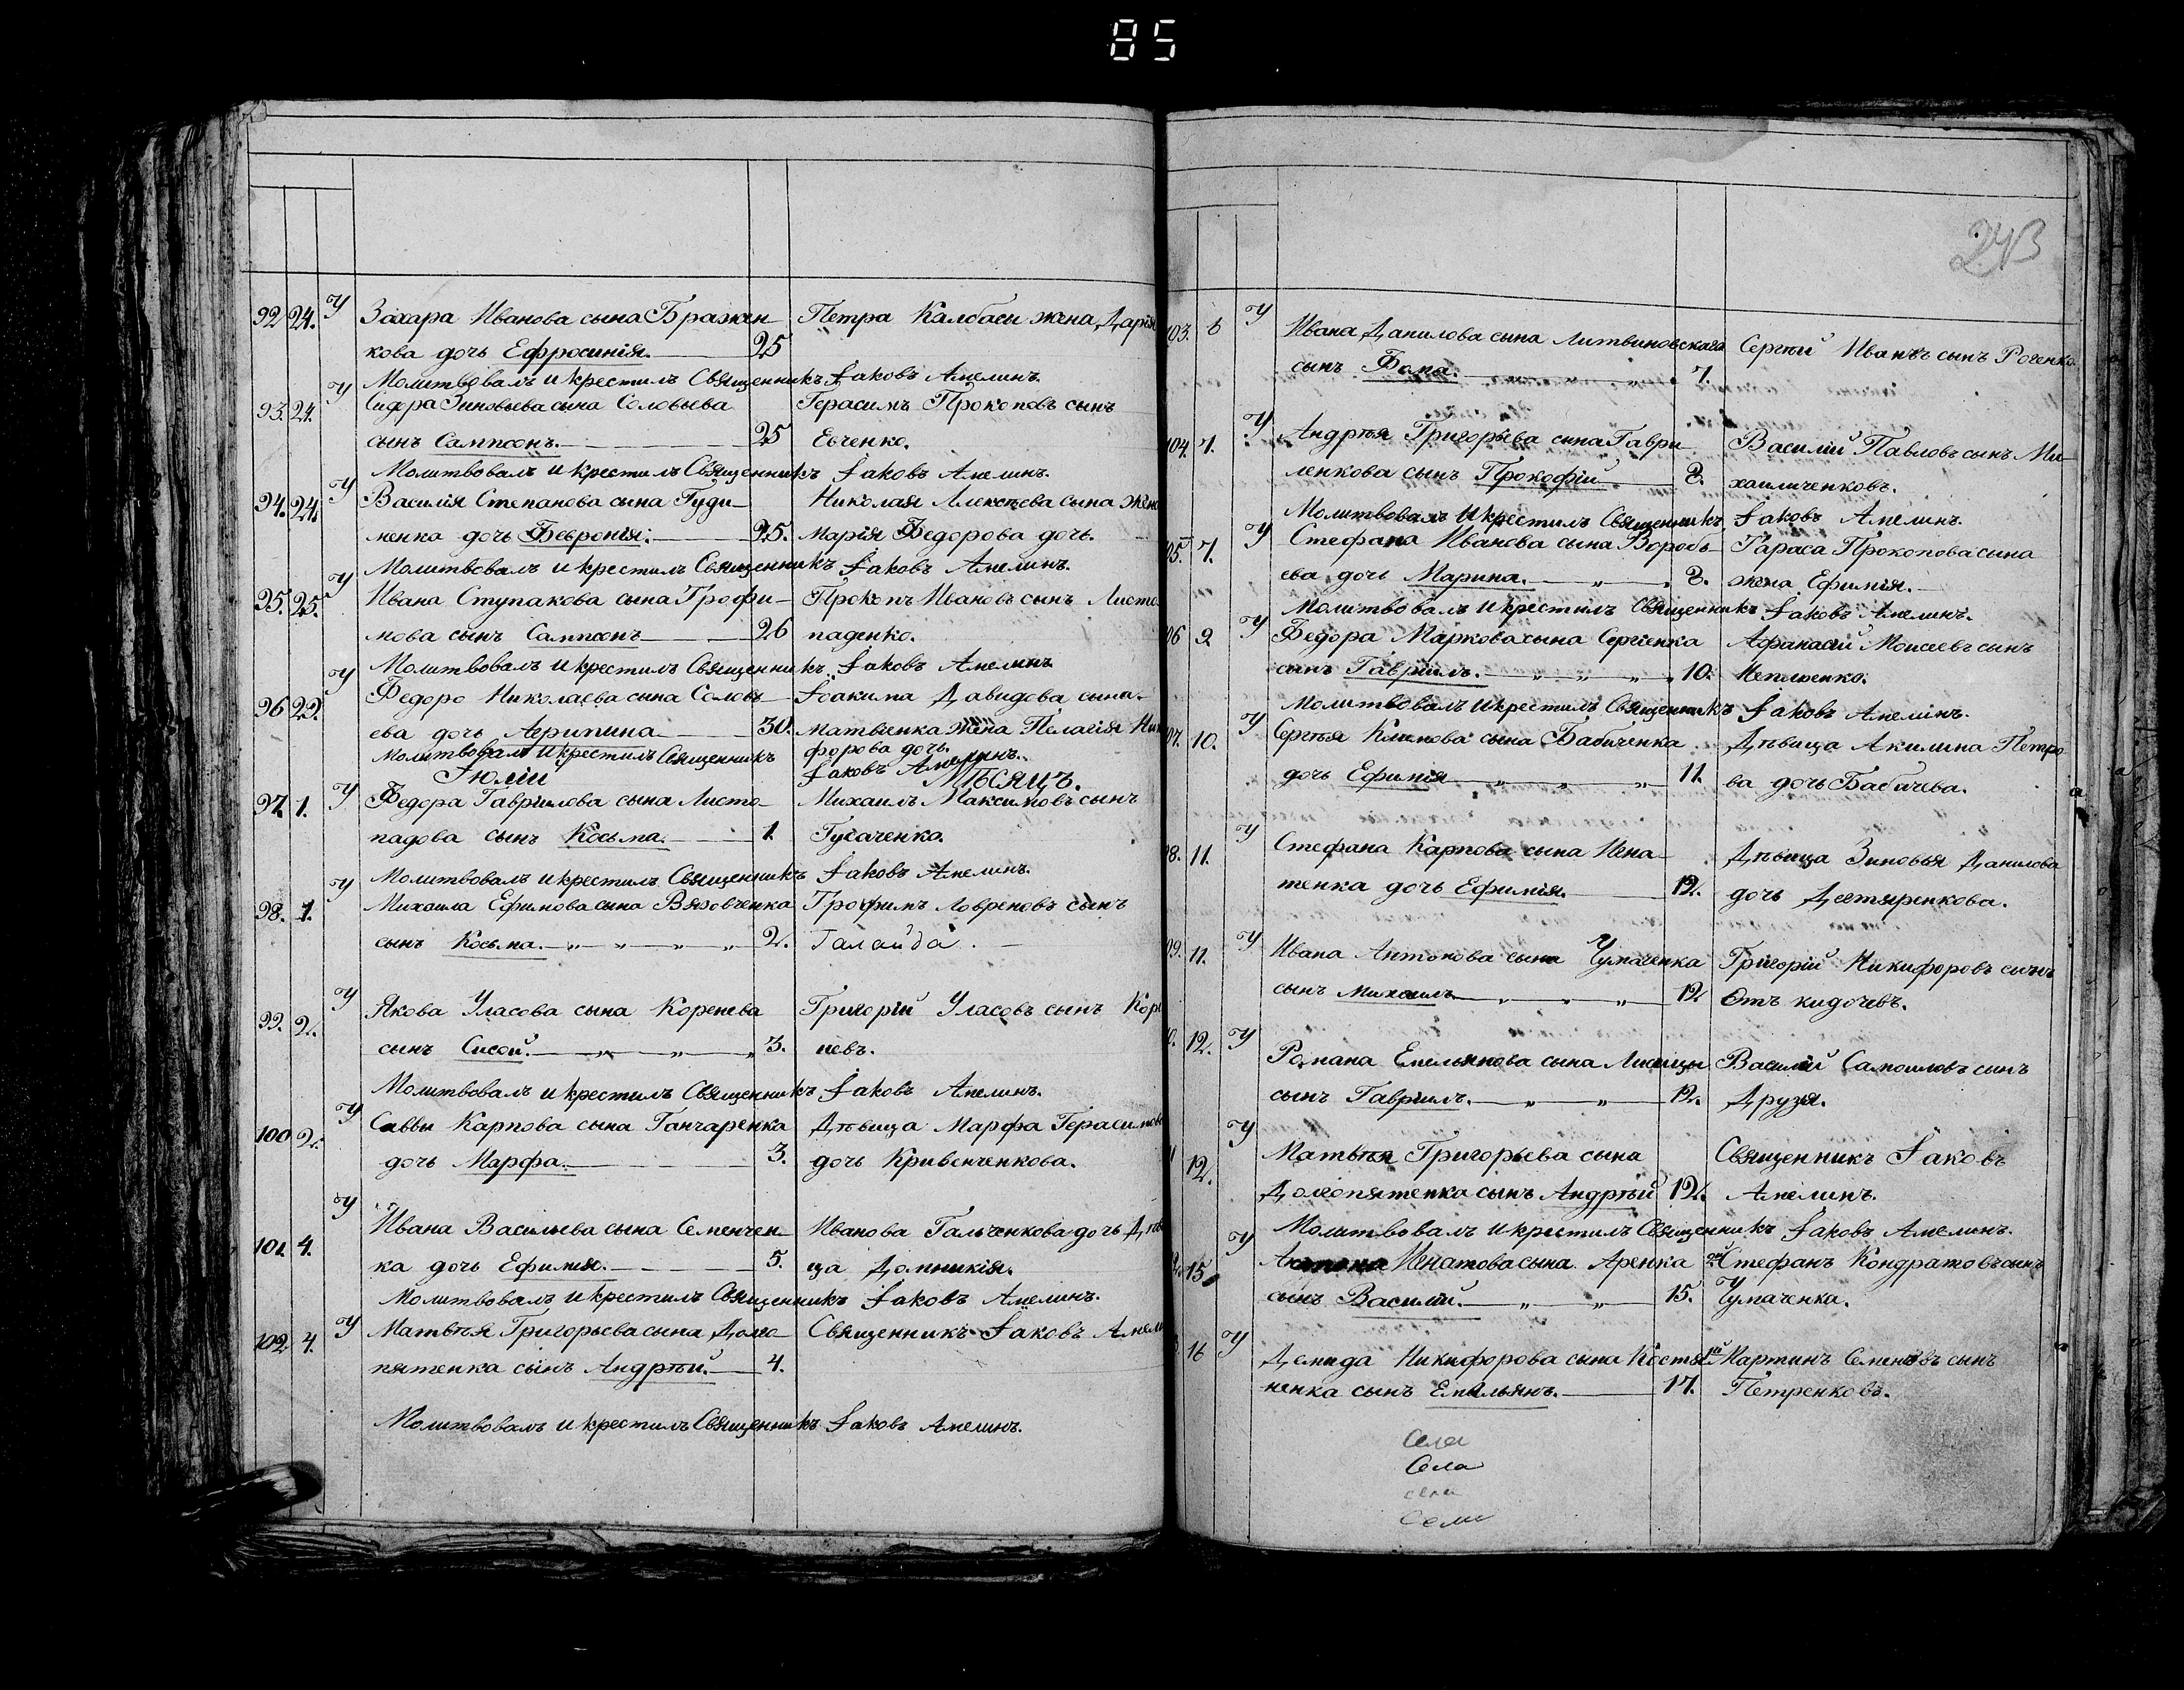 85
92 24. У Захара Иванова сына Бражен- Петра Калбаси жена Дарія
кова дочь Ефросинія. 25
Молитвовалъ и крестилъ Священникъ Іаковъ Амелинъ.
93 24. У Сидора Зиновьева сына Соловьева Герасимъ Прокоповъ сынъ
сынъ Сампсонъ. 25 Евченко.
Молитвовалъ и крестилъ Священникъ Іаковъ Амелинъ.
94. 24. У Василія Степанова сына Гуди- Николая Алексѣева сына жена
ненка дочь Февронія. 25. Марія Федорова дочь.
Молитвовалъ и крестилъ Священникъ Іаковъ Амелинъ.
95. 25. У Ивана Ступакова сына Трофи- Прокопъ Ивановъ сынъ Листо
мова сынъ Сампсонъ 26 паденко.
Молитвовалъ и крестилъ Священникъ Іаковъ Амелинъ
96 29. У Федора Николаева сына Соловь- Іоакима Давидова сына
ева дочь Агрипина 30. Матвѣенка жена Пелагія Ники
форова дочь.
Молитвовалъ и крестилъ Священникъ Іаковъ Амелинъ.
Іюлій Мѣсяцъ.
97. 1. У Федора Гаврилова сына Листо- Михаилъ Максимовъ сынъ
падова сынъ Косьма. 1. Гусаченко.
Молитвовалъ и крестилъ Священникъ Іаковъ Амелинъ.
98. 1. У Михаила Ефимова сына Вязовченка Трофимъ Лавреновъ сынъ
сынъ Косьма. 2. Галайда.
99. 2. У Якова Уласова сына Коренева Григорій Уласовъ сынъ Коре
сынъ Сисой. 3. невъ.
Молитвовалъ и крестилъ Священникъ Іаковъ Амелинъ.
100 2. У Саввы Карпова сына Ганчаренка Дѣвица Марфа Герасимова
дочь Марфа. 3. дочь Кривенченкова.
101. 4. У Ивана Васильева сына Семенчен- Иванова Гальченкова дочь Дѣви
ка дочь Ефимія. 5. ца Домникія.
Молитвовалъ и крестилъ Священникъ Іаковъ Амелинъ.
102 4. У Матвѣя Григорьева сына Долго- Священникъ Іаковъ Амели
пятенка сынъ Андрѣй. 4.
Молитвовалъ и крестилъ Священникъ Іаковъ Амелинъ.
243
103. 6 У Ивана Данилова сына Литвиновскаго Сергѣй Ивановъ сынъ Роченко.
сынъ Фома. 7.
104. 7. У Андрѣя Григорьева сына Гаври- Василій Павловъ сынъ Ми-
ленкова сынъ Прокофій 8. хаиличенковъ.
Молитвовалъ и крестилъ Священникъ Іаковъ Амелинъ.
05. 7. У Стефана Иванова сына Воробь- Тараса Прокопова сына
ева дочь Марина. 8. жена Ефимія.
Молитвовалъ и крестилъ Священникъ Іаковъ Амелинъ.
06 9 У Федора Маркова сына Сергіенка Афанасій Моисеевъ сынъ
сынъ Гавріилъ. 10.
Молитвовалъ и крестилъ Священникъ Іаковъ Амелинъ.
07. 10. У Сергѣя Климова сына Бабиченка Дѣвица Акилина Петро
дочь Ефимія 11. ва дочь Бабичева.
08. 11. У Стефана Карпова сына Игна- Дѣвица Зиновья Данилова
тенка дочь Ефимія. 12. дочь Дегтяренкова.
09. 11. У Ивана Антонова сына Чумаченка Григорій Никифоровъ сынъ
сынъ Михаилъ 12 Откидочевъ.
0. 12. У Романа Емельянова сына Лисицы Василій Самоиловъ сынъ
сынъ Гавріилъ. 12. Друзя.
1 12. У Матвѣя Григорьева сына Священникъ Іаковъ
Долгопятенка сынъ Андрѣй 12. Амелинъ.
Молитвовалъ и крестилъ Священникъ Іаковъ Амелинъ.
15 У Игнатова сына Аренка Стефанъ Кондратовъ сынъ
сынъ Василій. 15. Чумаченка.
16 У Демида Никифорова сына Костю Мартинъ Семеновъ сынъ
ненка сынъ Емельянъ. 17. Петренковъ.
Села
Села
села
Села